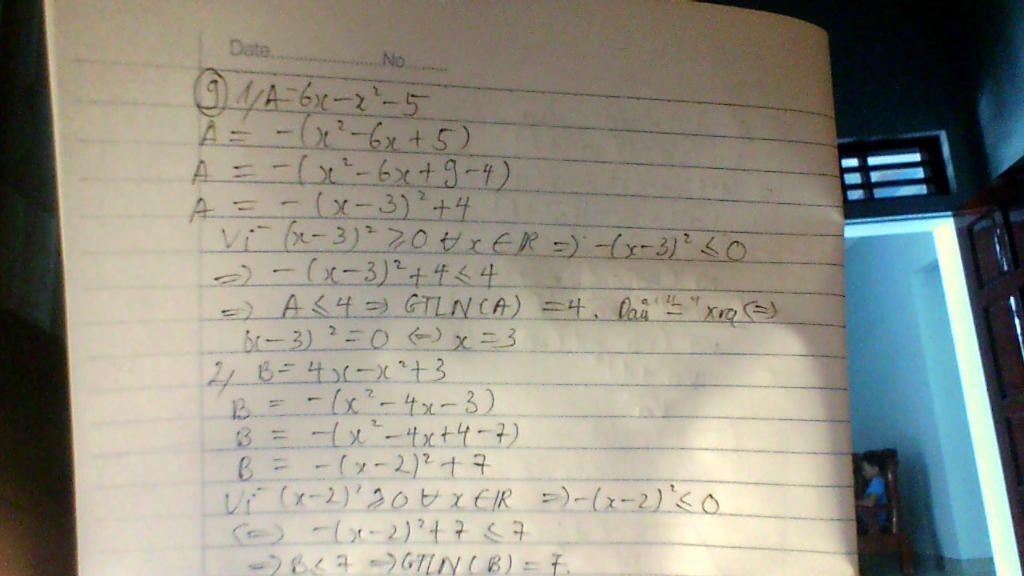 Date.................No.......
9 1, A=6x-x²-5
A = -(x²-6x+5)
A = -(x²-6x+9-4)
A = -(x-3)²+4
Vì (x-3)²≥0 ∀x∈R => -(x-3)²≤0
=> -(x-3)²+4≤4
=> A≤4 => GTLN(A) =4. Dấu "=" xra <=>
(x-3)²=0 <=> x=3
2, B=4x-x²+3
B = -(x²-4x-3)
B = -(x²-4x+4-7)
B = -(x-2)²+7
Vì (x-2)²≥0 ∀x∈R => -(x-2)²≤0
<=> -(x-2)²+7≤7
=> B≤7 => GTLN(B)=7.